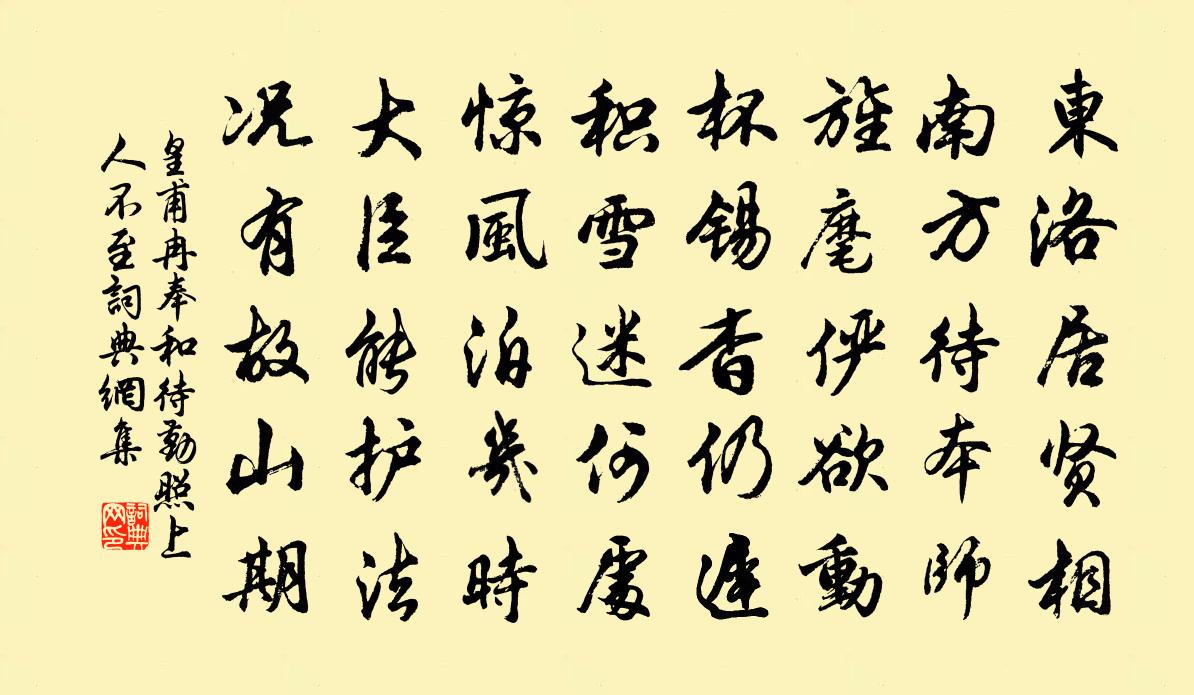 東洛居贤相
南方待本师
旌麾俨欲動
杯锡杳仍遲
积雪迷何處
惊風泊幾時
大臣能护法
况有故山期
皇甫冉奉和待勤照上
人不至詞典網集
詞典
网印